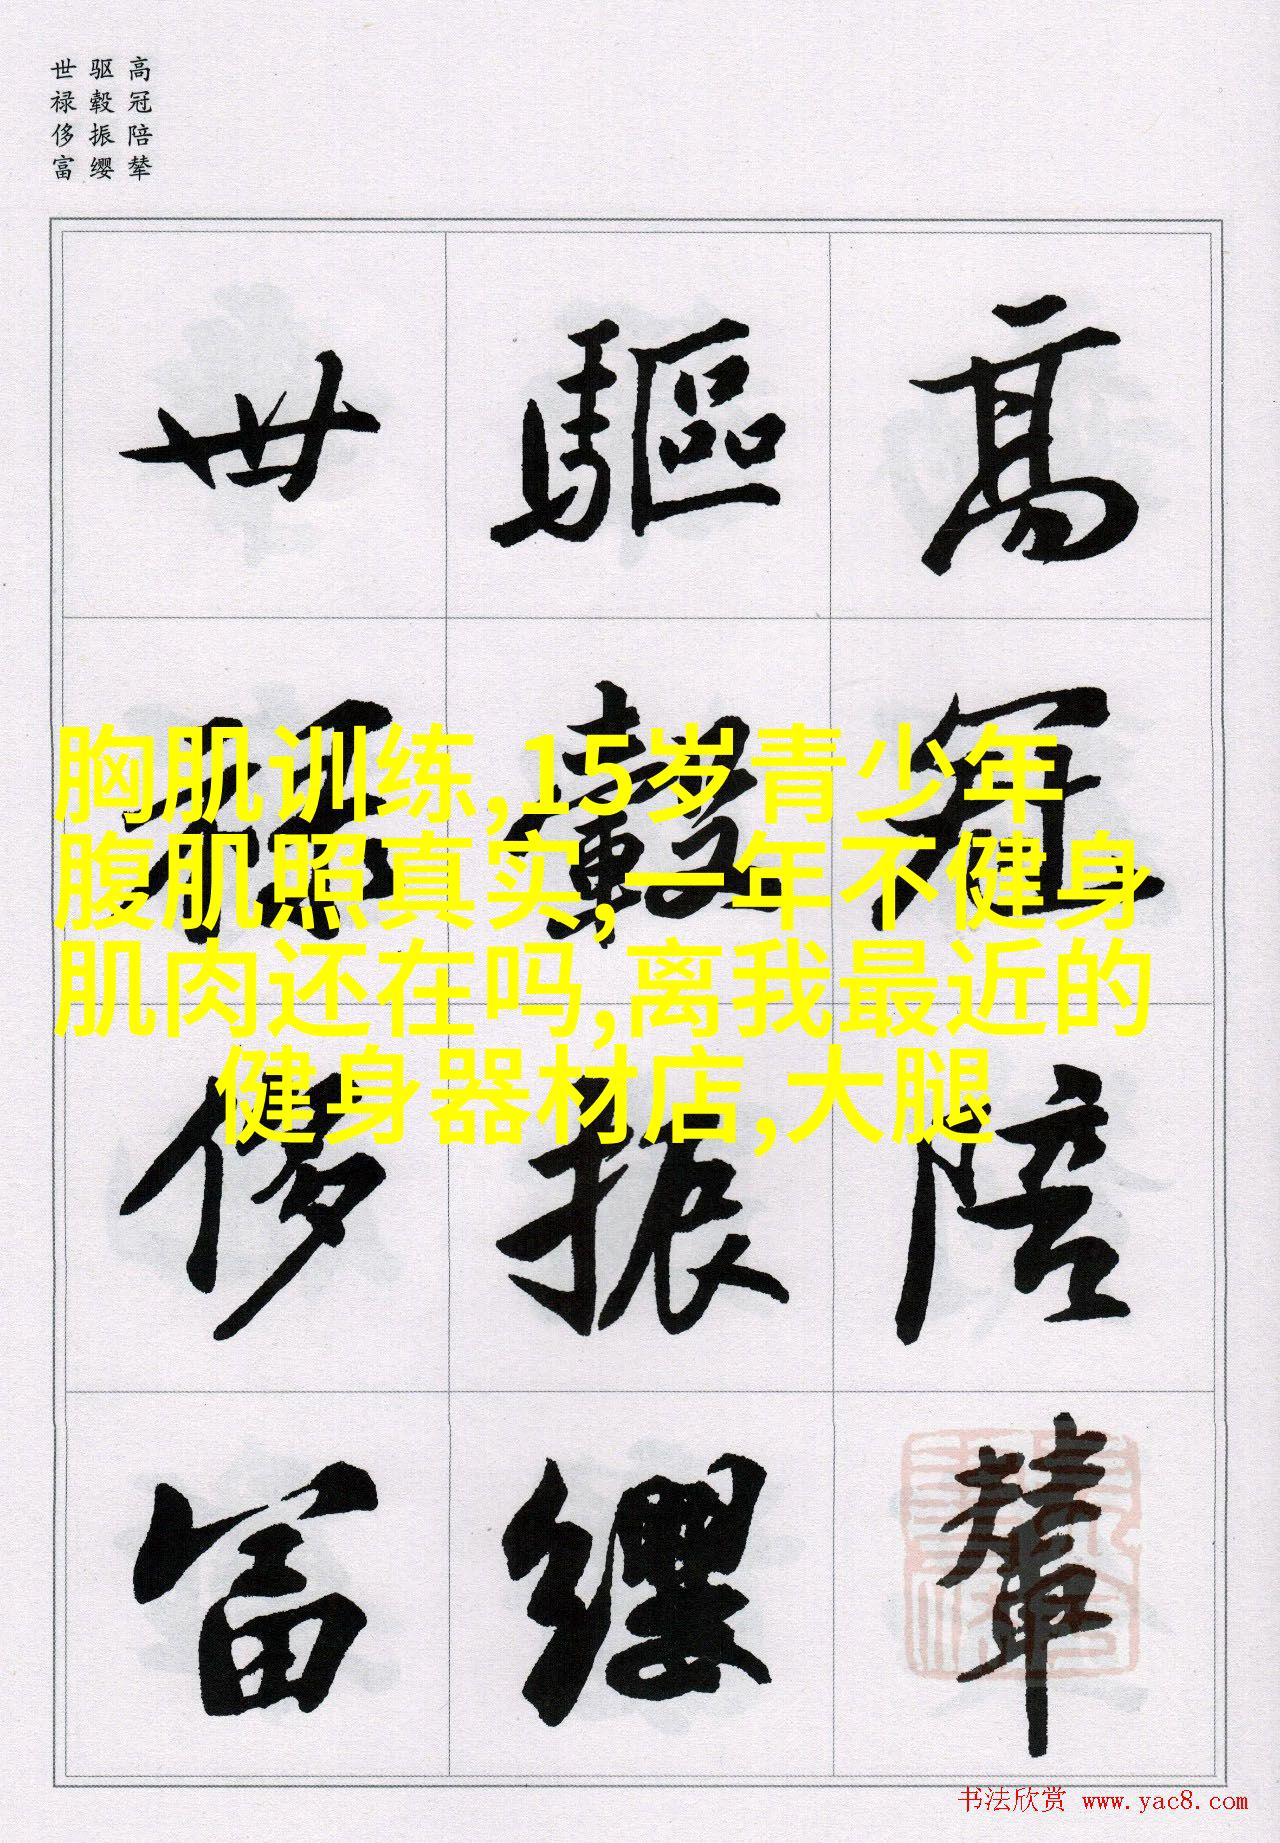 高冠陪辇
驱毂振缨
世禄侈富
高冠陪輦
驅轂振纓
世祿侈富
胸肌训练,15岁青少年
腹肌照真实,一年不健身
肌肉还在吗,离我最近的
健身器材店,大腿
书法欣赏 www.yac8.com